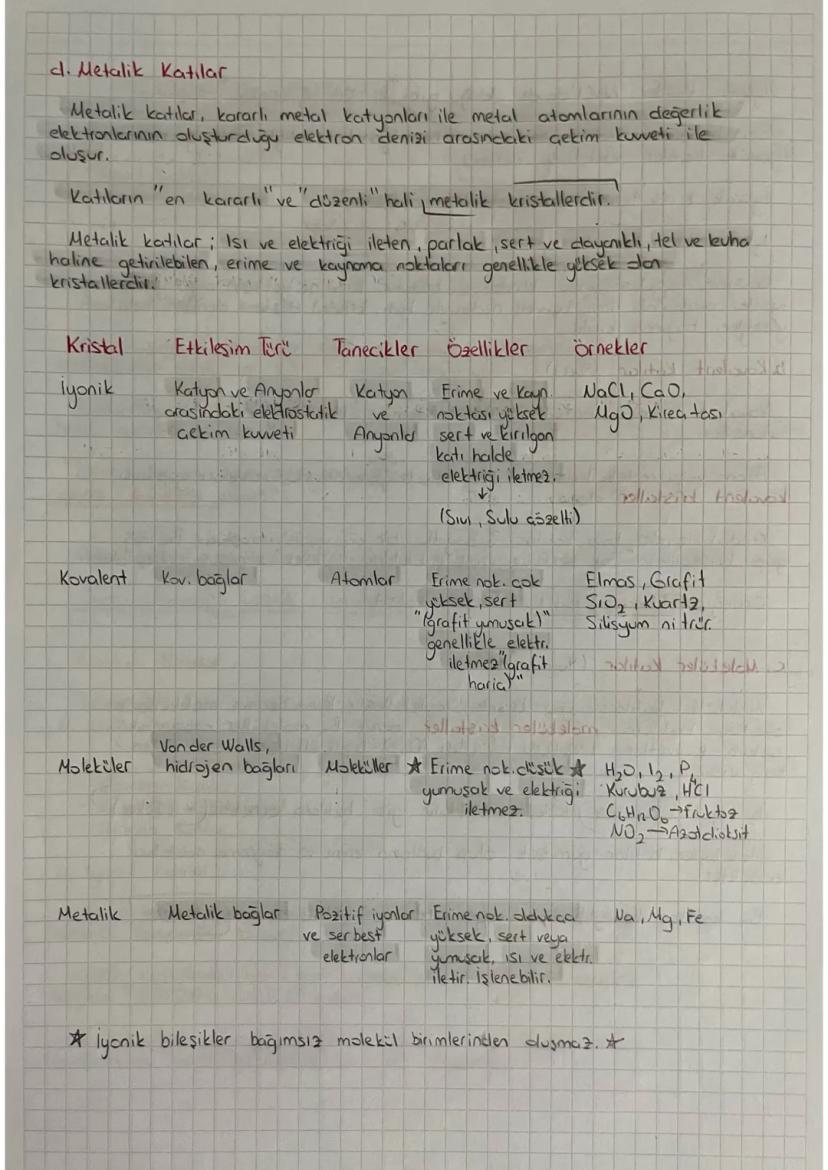 d. Metalik Katılar
Metalik katılar, kararlı metal katyonları ile metal atomlarının değerlik
elektronlarının oluşturduğu elektron denizi arasındaki çekim kuvveti ile
oluşur.
Katıların "en kararlı" ve "düzenli" hali metalik kristallerdir.
Metalik katılar; Isı ve elektriği ileten, parlak, sert ve dayanıklı, tel ve levha
haline getirilebilen, erime ve kaynama noktaları genellikle yüksek olan
kristallerdir.
Kristal Etkileşim Türü Tanecikler Özellikler Örnekler
İyonik Katyon ve Anyonlar Katyon Erime ve Kayn. NaCl, CaO,
arasındaki elektrostatik ve noktası yüksek MgO, Kireç taşı
çekim kuvveti Anyonlar sert ve kırılgan
katı halde
elektriği iletmez.
↓
(Sıvı, Sulu çözelti)
Kovalent Kov. bağlar Atomlar Erime nok. çok Elmas, Grafit
yüksek, sert SiO₂, Kuartz,
"(grafit yumuşak)" Silisyum nitrür.
genellikle elektr.
iletmez "(grafit
hariç)"
Van der Walls,
Moleküler hidrojen bağları Moleküller ☆ Erime nok. düşük ☆ H₂O, I₂, P₄
yumuşak ve elektriği Kurubuz, HCl
iletmez. C₆H₁₂O₆→Fruktoz
NO₂→Azotdioksit
Metalik Metalik bağlar Pozitif iyonlar Erime nok. oldukça Na, Mg, Fe
ve serbest yüksek, sert veya
elektronlar yumuşak, ısı ve elektr.
iletir. İşlenebilir.
☆ İyonik bileşikler bağımsız molekül birimlerinden oluşmaz. ☆